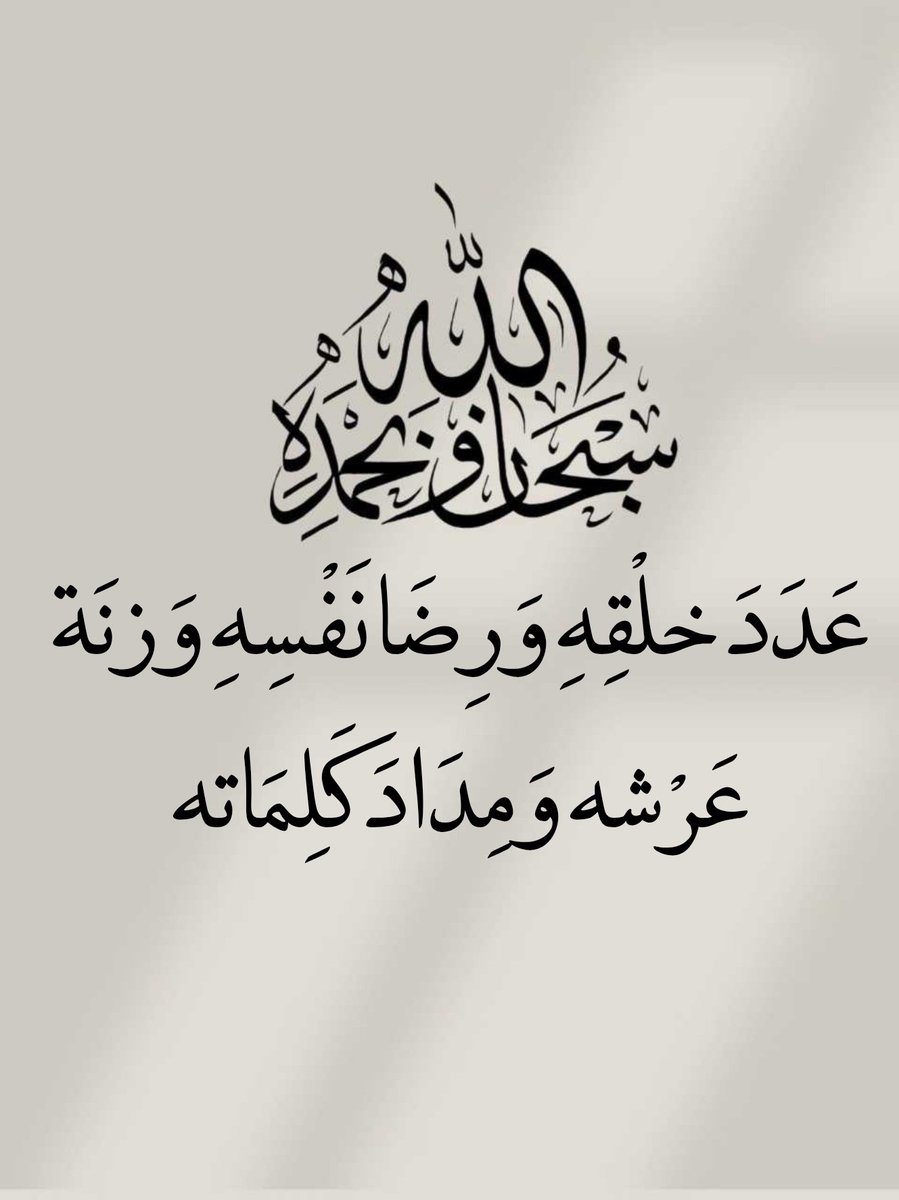 سُبْحَانَ اللّٰهِ وَبِحَمْدِهِ
عَدَدَ خلْقِهِ وَرِضَا نَفْسِهِ وَزنَة
عَرْشه وَمِدَادَ كَلِمَاته